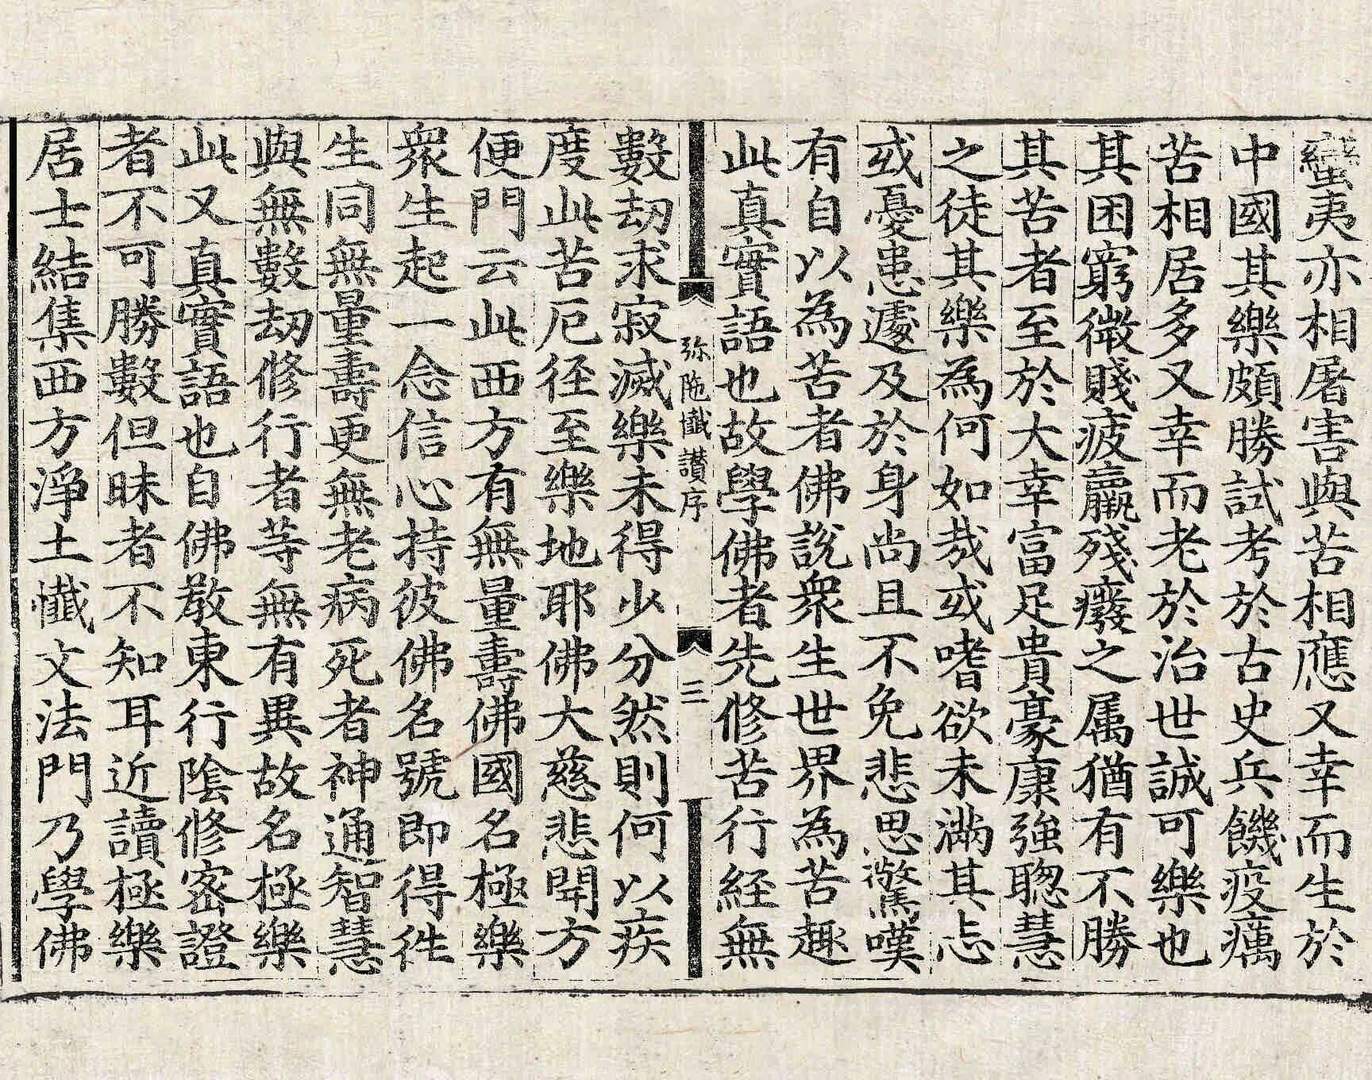 蠻夷亦相屠害與苦相應又幸而生於
中國其樂頗勝試考於古史兵饑疫癘
苦相居多又幸而老於治世誠可樂也
其困窮微賤疲羸殘癈之属猶有不勝
其苦者至於大幸富足貴豪康強聦慧
之徒其樂為何如㢤或嗜欲未滿其志
或憂患遽及於身尚且不免悲思驚嘆
有自以為苦者佛說衆生世界為苦趣
此真實語也故學佛者先修苦行経無
弥陁懺讃序
三
數刼求寂滅樂未得少分然則何以疾
度此苦厄径至樂地耶佛大慈悲開方
便門云此西方有無量壽佛國名極樂
衆生起一念信心持彼佛名號即得徃
生同無量壽更無老病死者神通智慧
與無數刼修行者等無有異故名極樂
此又真實語也自佛教東行隂修密證
者不可勝數但昧者不知耳近讀極樂
居士結集西方淨土懺文法門乃學佛